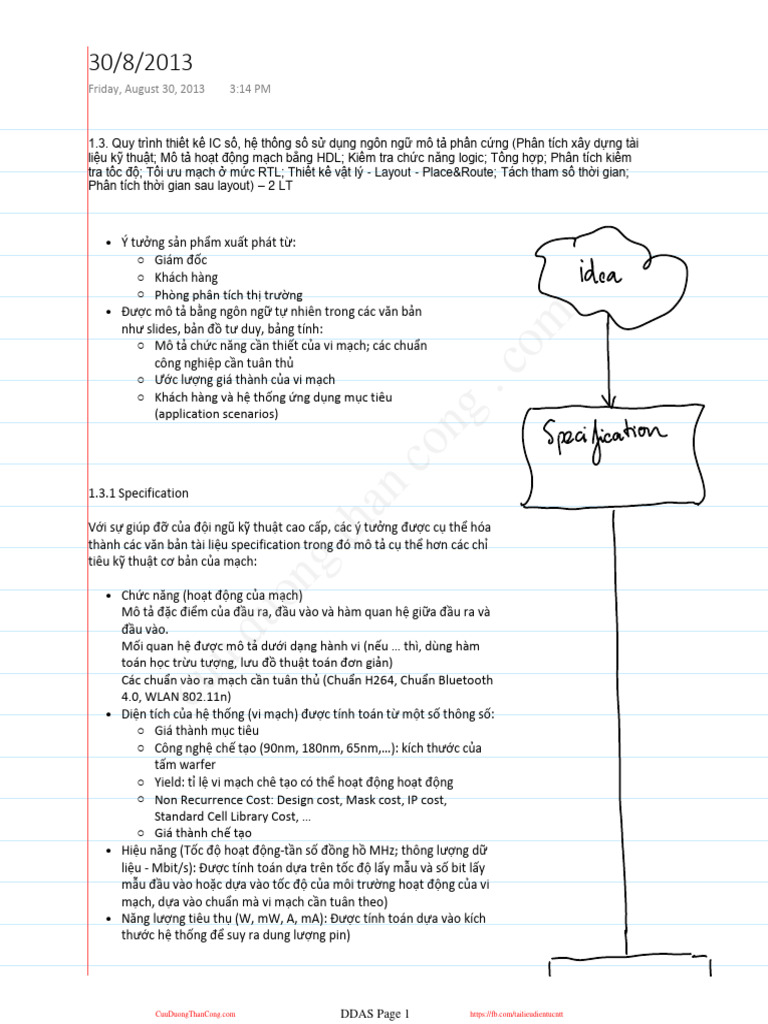 30/8/2013
Friday, August 30, 2013 3:14 PM
1.3. Quy trình thiết kế IC số, hệ thống số sử dụng ngôn ngữ mô tả phần cứng (Phân tích xây dựng tài
liệu kỹ thuật; Mô tả hoạt động mạch bằng HDL; Kiểm tra chức năng logic; Tổng hợp; Phân tích kiểm
tra tốc độ; Tối ưu mạch ở mức RTL; Thiết kế vật lý - Layout - Place&Route; Tách tham số thời gian;
Phân tích thời gian sau layout) – 2 LT
• Ý tưởng sản phẩm xuất phát từ:
○ Giám đốc
○ Khách hàng
○ Phòng phân tích thị trường
• Được mô tả bằng ngôn ngữ tự nhiên trong các văn bản
như slides, bản đồ tư duy, bảng tính:
○ Mô tả chức năng cần thiết của vi mạch; các chuẩn
công nghiệp cần tuân thủ
○ Ước lượng giá thành của vi mạch
○ Khách hàng và hệ thống ứng dụng mục tiêu
(application scenarios)
idea
Specification
1.3.1 Specification
Với sự giúp đỡ của đội ngũ kỹ thuật cao cấp, các ý tưởng được cụ thể hóa
thành các văn bản tài liệu specification trong đó mô tả cụ thể hơn các chỉ
tiêu kỹ thuật cơ bản của mạch:
• Chức năng (hoạt động của mạch)
Mô tả đặc điểm của đầu ra, đầu vào và hàm quan hệ giữa đầu ra và
đầu vào.
Mối quan hệ được mô tả dưới dạng hành vi (nếu ... thì, dùng hàm
toán học trừu tượng, lưu đồ thuật toán đơn giản)
Các chuẩn vào ra mạch cần tuân thủ (Chuẩn H264, Chuẩn Bluetooth
4.0, WLAN 802.11n)
• Diện tích của hệ thống (vi mạch) được tính toán từ một số thông số:
○ Giá thành mục tiêu
○ Công nghệ chế tạo (90nm, 180nm, 65nm,...): kích thước của
tấm warfer
○ Yield: tỉ lệ vi mạch chê tạo có thể hoạt động hoạt động
○ Non Recurrence Cost: Design cost, Mask cost, IP cost,
Standard Cell Library Cost, ...
○ Giá thành chế tạo
• Hiệu năng (Tốc độ hoạt động-tần số đồng hồ MHz; thông lượng dữ
liệu - Mbit/s): Được tính toán dựa trên tốc độ lấy mẫu và số bit lấy
mẫu đầu vào hoặc dựa vào tốc độ của môi trường hoạt động của vi
mạch, dựa vào chuẩn mà vi mạch cần tuân theo)
• Năng lượng tiêu thụ (W, mW, A, mA): Được tính toán dựa vào kích
thước hệ thống để suy ra dung lượng pin)
cuu duong than cong . com
CuuDuongThanCong.com DDAS Page 1 https://fb.com/tailieudientucntt